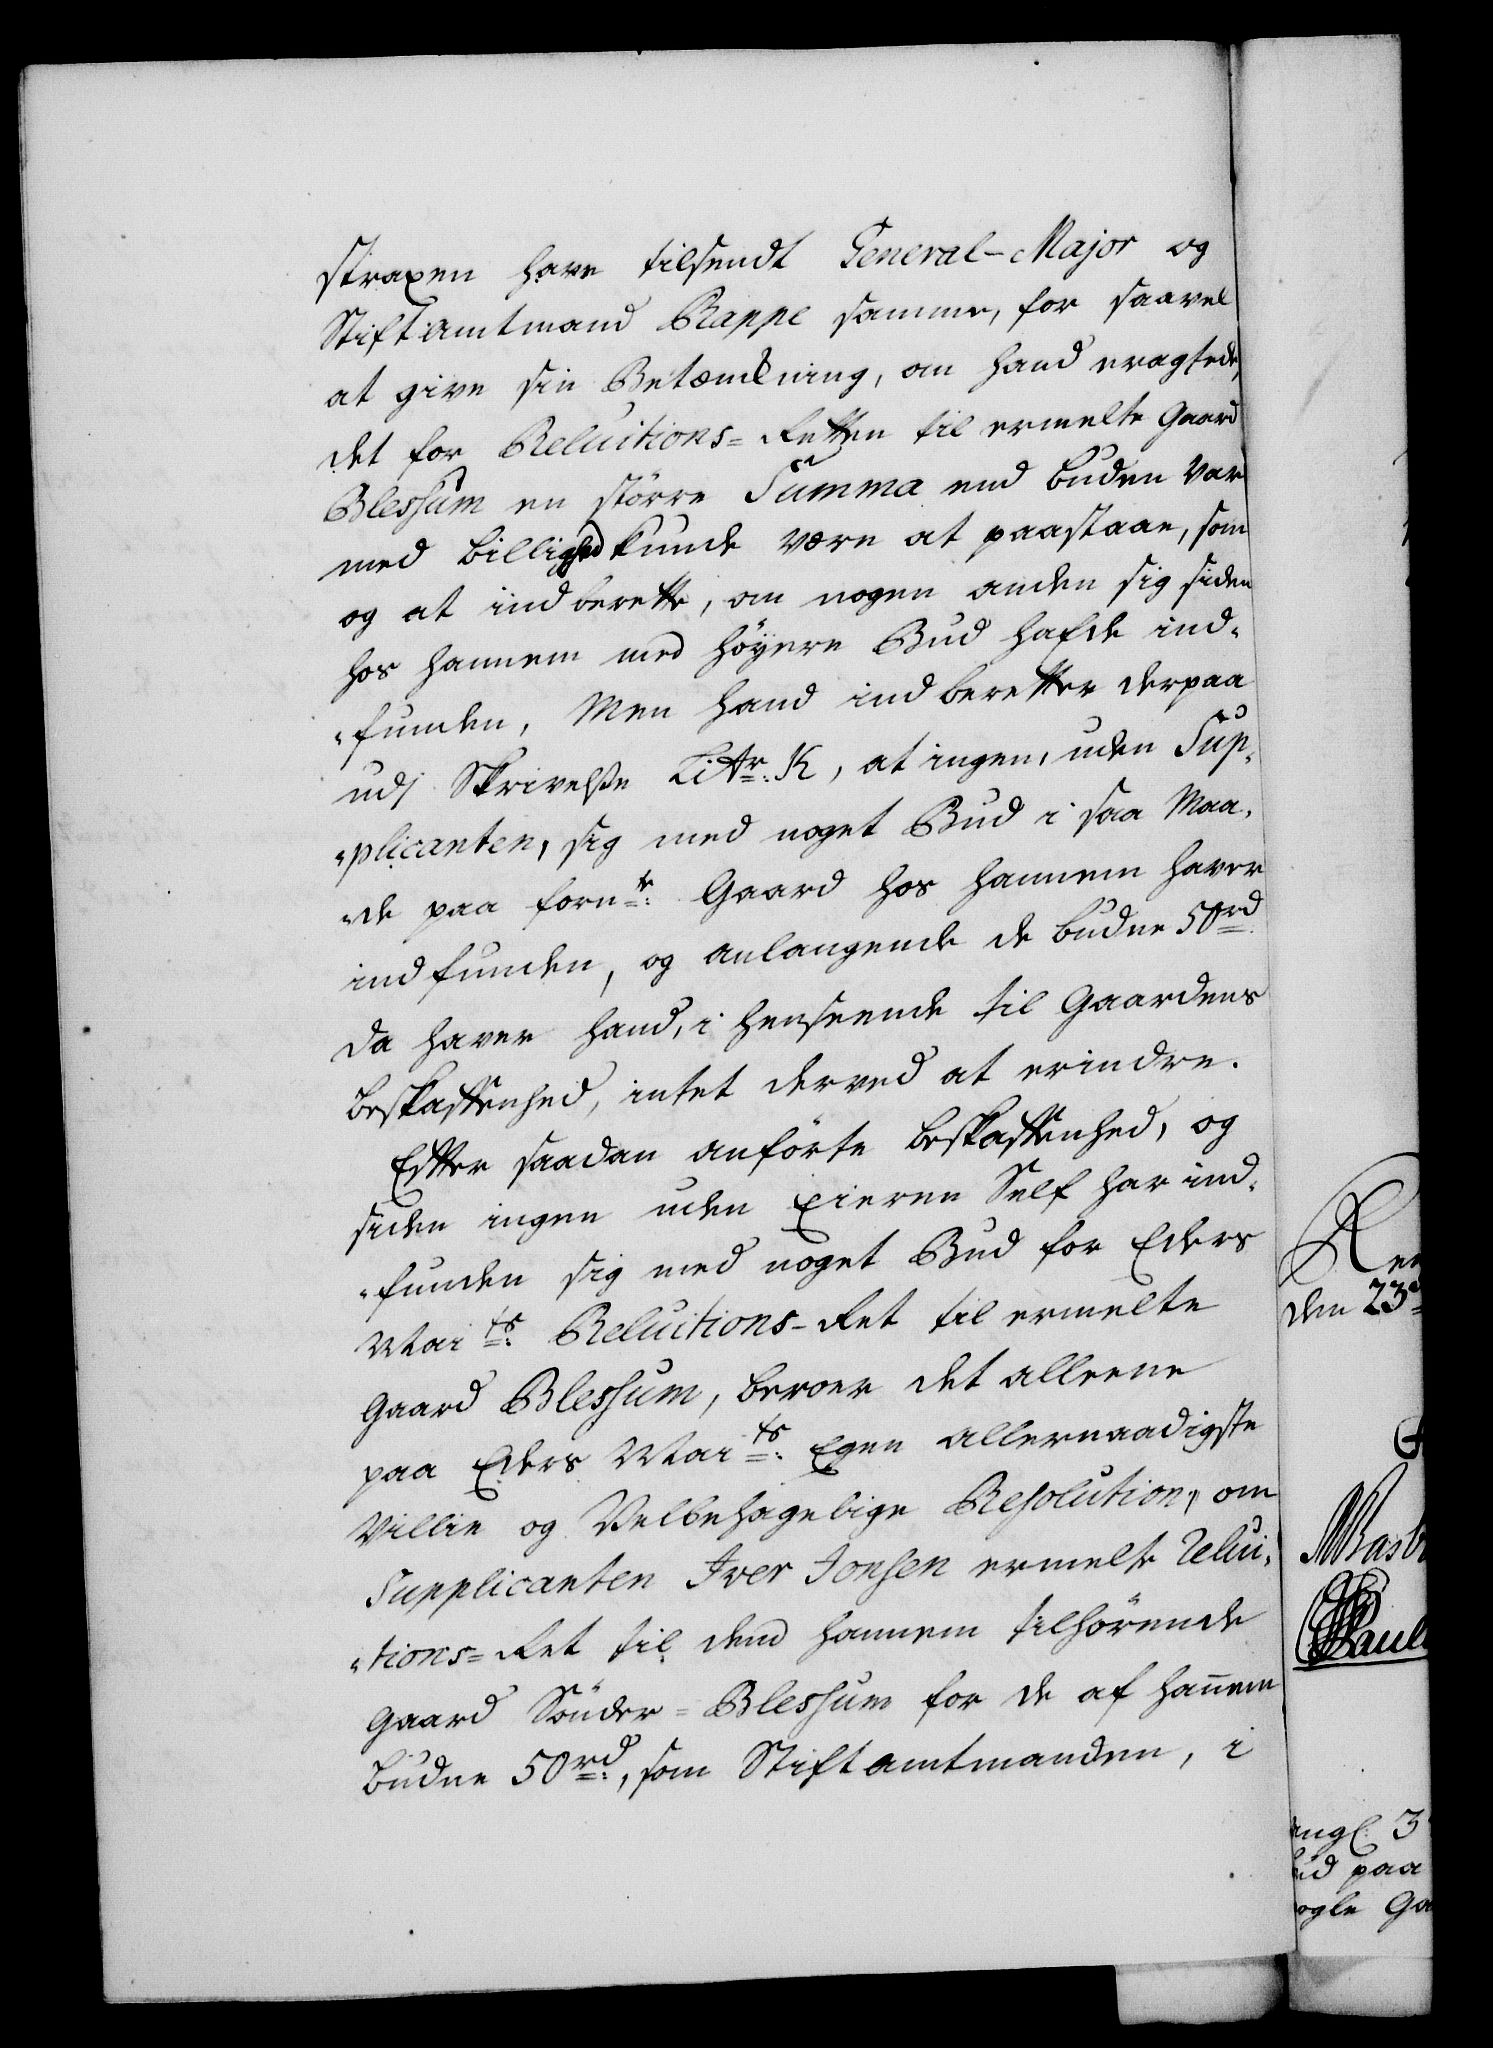 straxen have tilsendt General-Major og
Stiftamtmand Rappe samme, for saavel
at give sin Betænkning, om hand eragtede,
det for Reluitions-Retten til ermelte Gaard
Blessum en större Summa end buden var
med billighed kunde være at paastaae, som
og at indberette, om nogen anden sig siden
hos hannem med höyere Bud hafde ind-
-funden, Men hand indberetter derpaa
udj Skrivelse Litr: K, at ingen, uden Sup-
-plicanten, sig med noget Bud i saa Maa-
-de paa fornte: Gaard hos hannem haver
indfunden, og anlangende de budne 50 rd
da haver hand, i henseende til Gaardens
beskaffenhed, intet derved at erindre.
Efter saadan anförte beskaffenhed, og
siden ingen uden Eieren Self har ind-
-funden sig med noget Bud for Eders
Maits: Reluitions-Ret til ermelte
Gaard Blessum, beroer det alleene
paa Eders Maits: Egen allernaadigste
Villie og Velbehagelige Resolution, om
Supplicanten Iver Jonsen ermelte Relui-
-tions-Ret til dend hannem tilhörende
Gaard Sönder-Blessum for de af hannem
budne 50 rd:, som Stiftamtmanden, i
Ren
den 23
ngl: 3
ud paa
ogle Ga